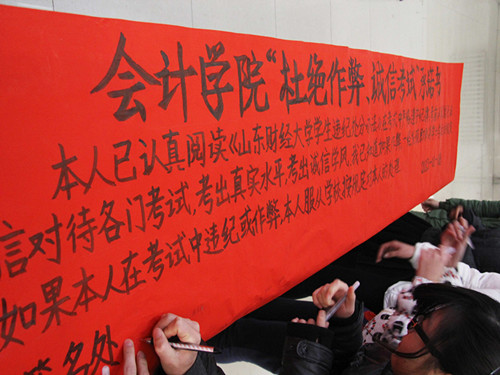 会计学院“杜绝作弊,诚信考试”承诺书
本人已认真阅读《山东财经大学学生违纪处分
信对待各门考试,考出真实水平,考出诚信学风,我已知道如果
如果本人在考试中违纪或作弊,本人服从学校按规定对本人的处理
签名处